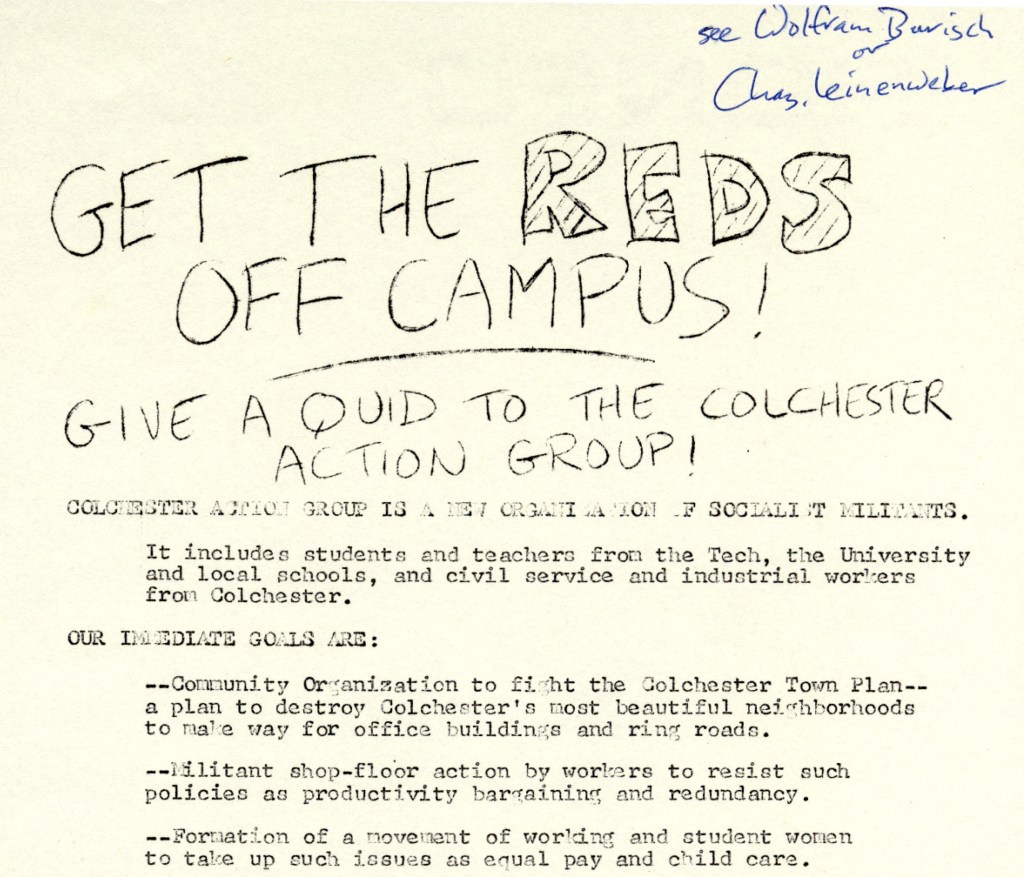 see Wolfram Burisch
or
Chas. Leinenweber
GET THE REDS
OFF CAMPUS!
GIVE A QUID TO THE COLCHESTER
ACTION GROUP!
COLCHESTER ACTION GROUP IS A NEW ORGANISATION OF SOCIALIST MILITANTS.
It includes students and teachers from the Tech, the University
and local schools, and civil service and industrial workers
from Colchester.
OUR IMMEDIATE GOALS ARE:
--Community Organization to fight the Colchester Town Plan--
a plan to destroy Colchester's most beautiful neighborhoods
to make way for office buildings and ring roads.
--Militant shop-floor action by workers to resist such
policies as productivity bargaining and redundancy.
--Formation of a movement of working and student women
to take up such issues as equal pay and child care.